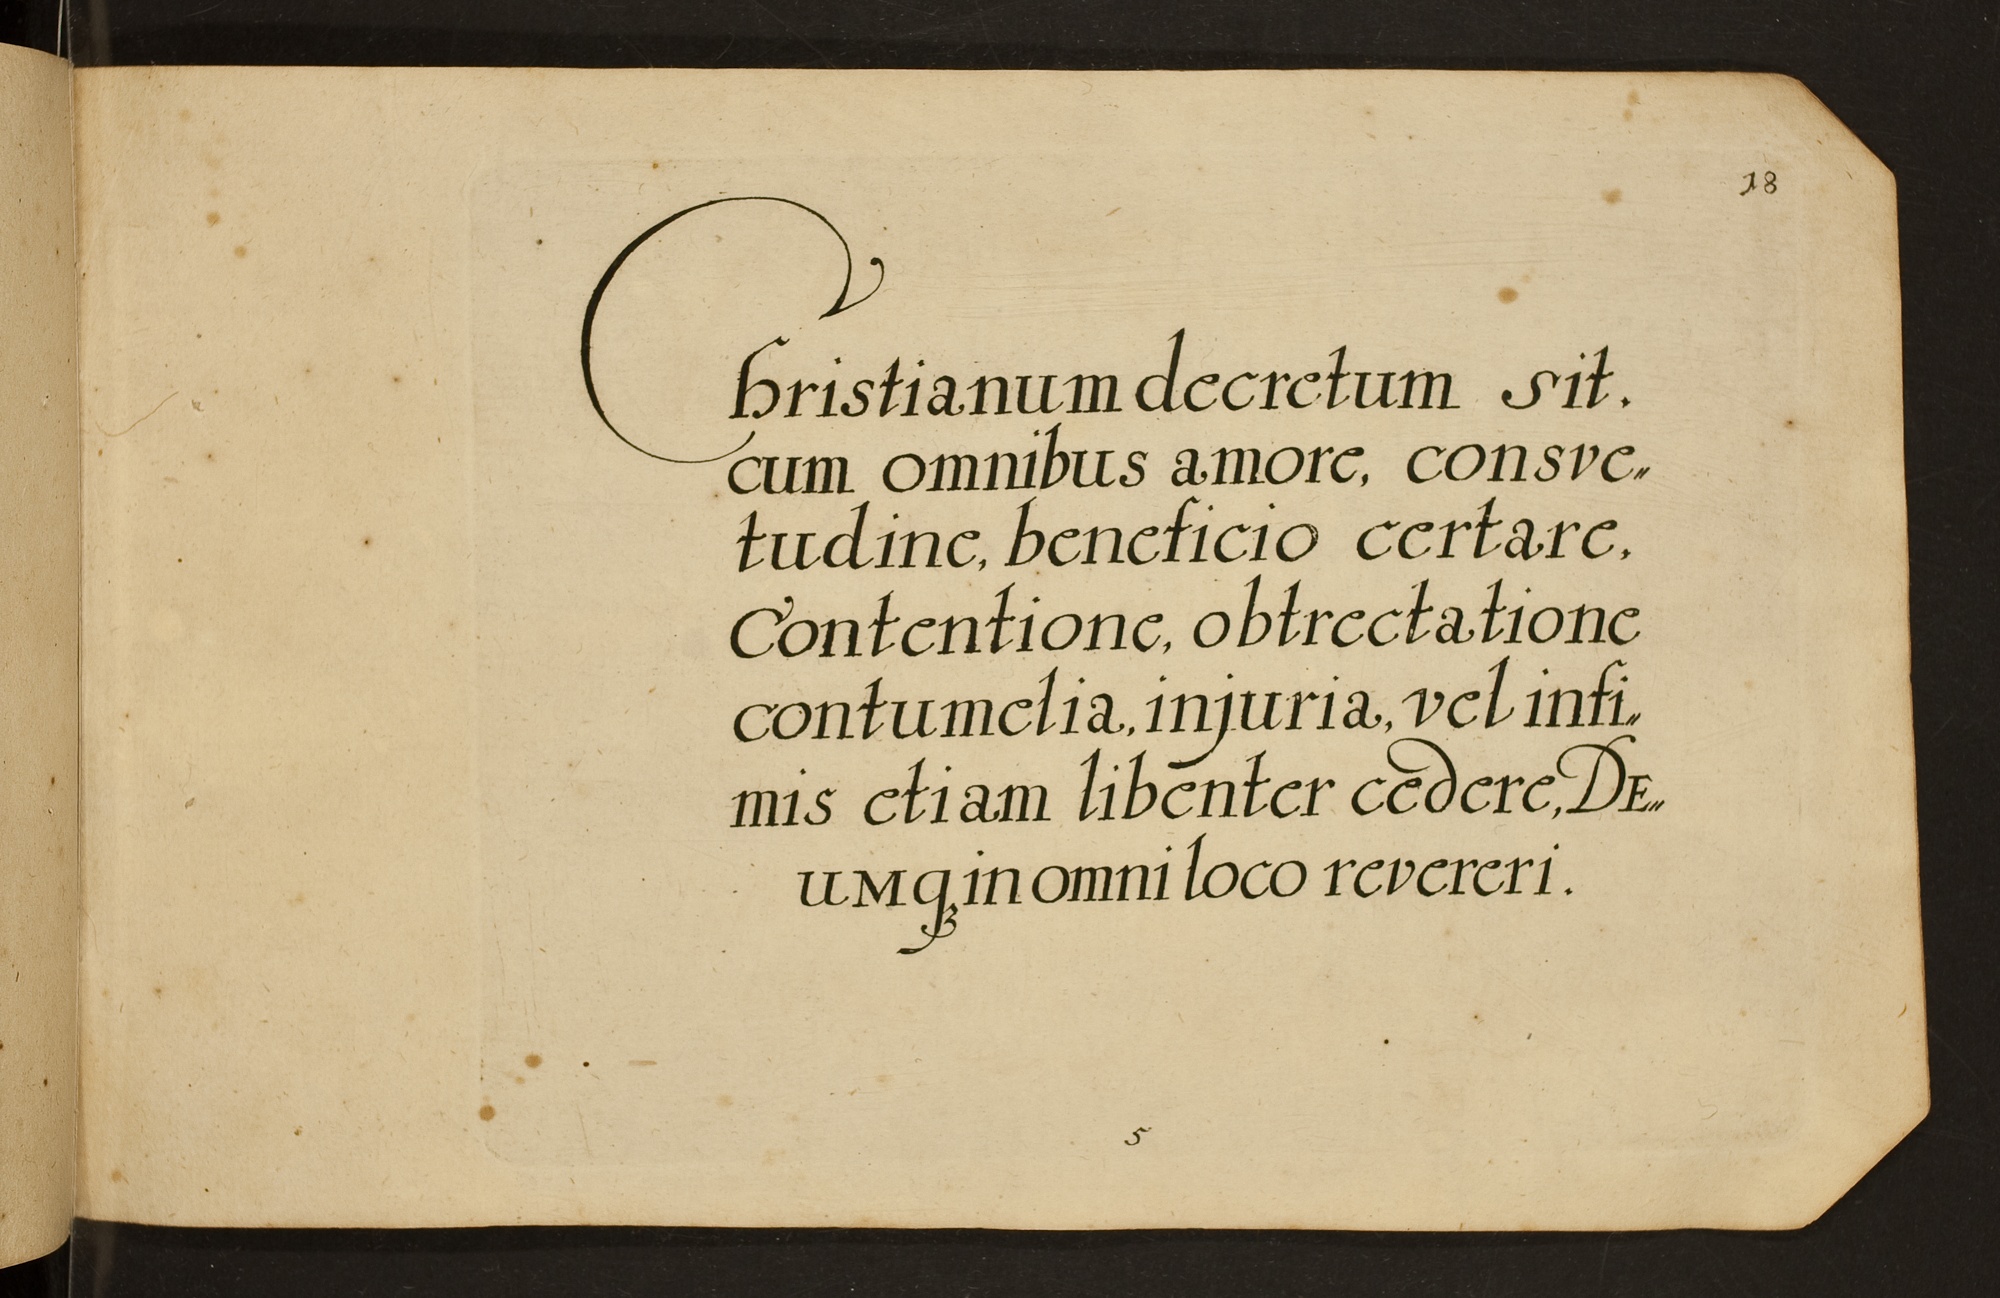 18
Christianum decretum sit.
cum omnibus amore, consve„
tudine, beneficio certare.
Contentione, obtrectatione
contumelia, injuria, vel infi„
mis etiam libenter cedere, DE„
UMqꝫ in omni loco revereri.
5